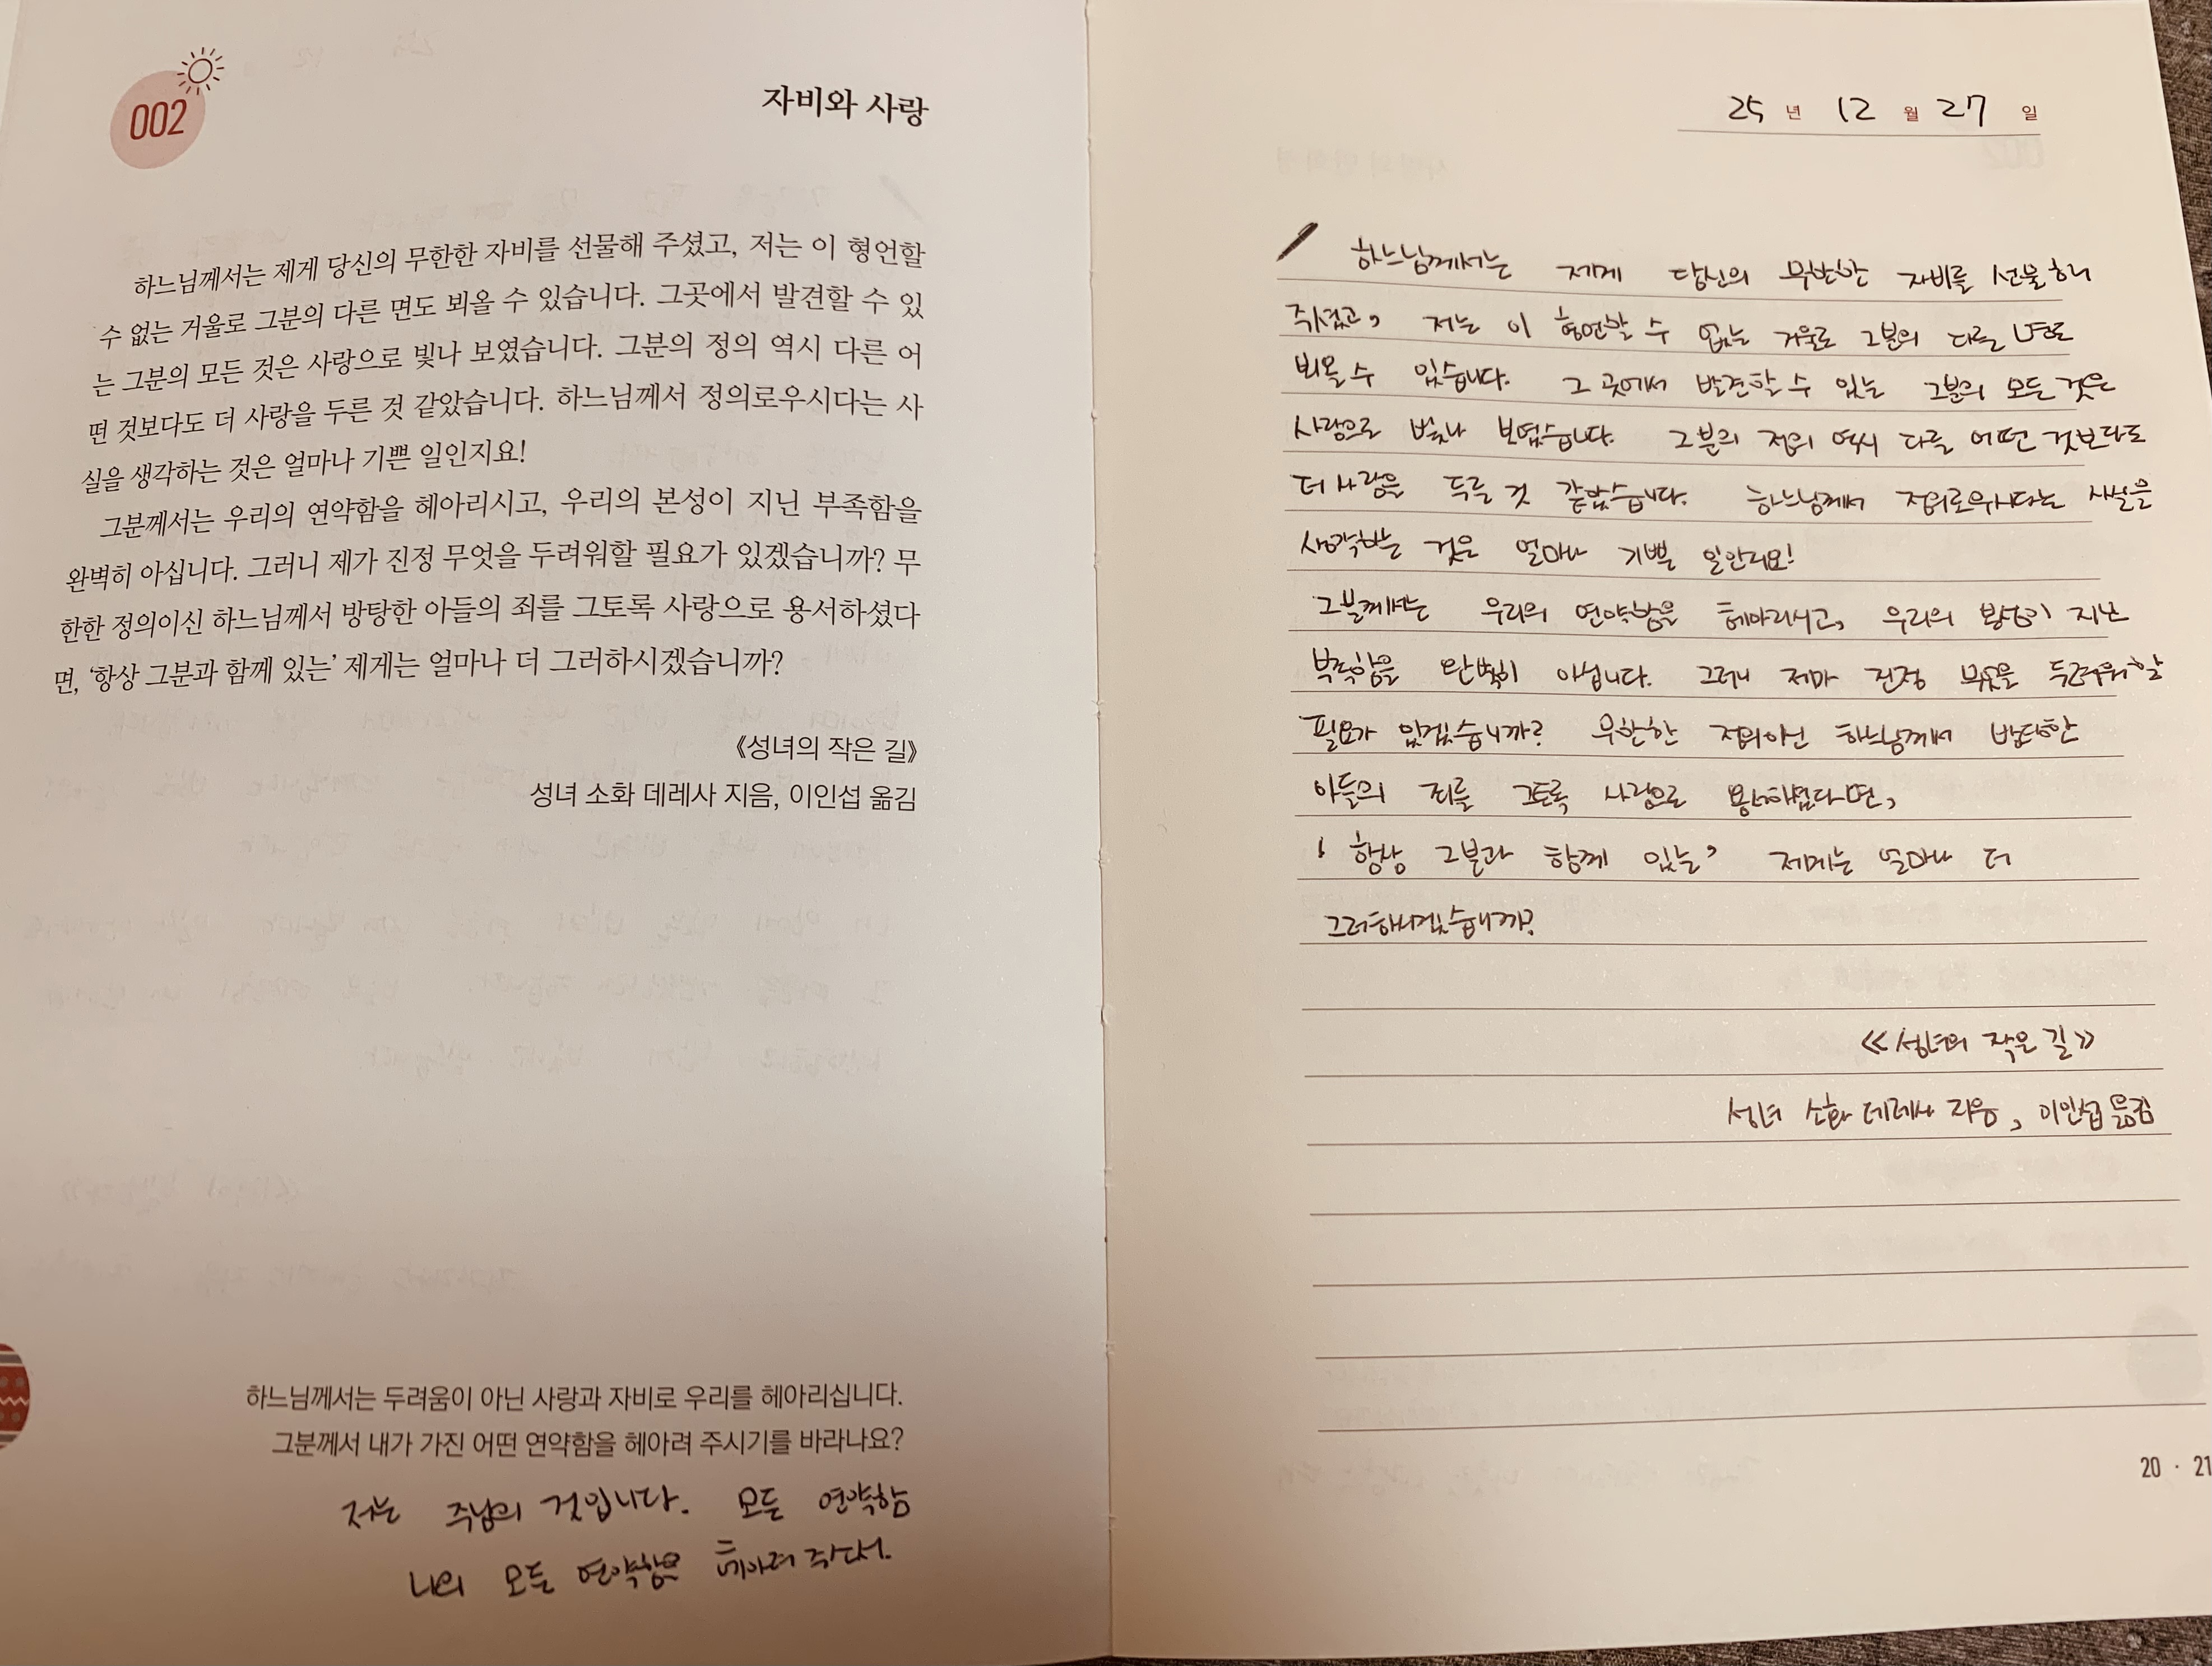 002
자비와 사랑
하느님께서는 제게 당신의 무한한 자비를 선물해 주셨고, 저는 이 형언할
수 없는 거울로 그분의 다른 면도 뵈올 수 있습니다. 그곳에서 발견할 수 있
는 그분의 모든 것은 사랑으로 빛나 보였습니다. 그분의 정의 역시 다른 어
떤 것보다도 더 사랑을 두른 것 같았습니다. 하느님께서 정의로우시다는 사
실을 생각하는 것은 얼마나 기쁜 일인지요!
그분께서는 우리의 연약함을 헤아리시고, 우리의 본성이 지닌 부족함을
완벽히 아십니다. 그러니 제가 진정 무엇을 두려워할 필요가 있겠습니까? 무
한한 정의이신 하느님께서 방탕한 아들의 죄를 그토록 사랑으로 용서하셨다
면, ‘항상 그분과 함께 있는’ 제게는 얼마나 더 그러하시겠습니까?
《성녀의 작은 길》
성녀 소화 데레사 지음, 이인섭 옮김
하느님께서는 두려움이 아닌 사랑과 자비로 우리를 헤아리십니다.
그분께서 내가 가진 어떤 연약함을 헤아려 주시기를 바라나요?
저는 주님의 것입니다. 모든 연약함
나의 모든 연약함을 헤아려 주소서.
25 년 12 월 27 일
하느님께서는 제게 당신의 무한한 자비를 선물해
주셨고, 저는 이 형언할 수 없는 거울로 그분의 다른 면도
뵈올 수 있습니다. 그 곳에서 발견할 수 있는 그분의 모든 것은
사랑으로 빛나 보였습니다. 그분의 정의 역시 다른 어떤 것보다도
더 사랑을 두른 것 같았습니다. 하느님께서 정의로우시다는 사실을
생각하는 것은 얼마나 기쁜 일인지요!
그분께서는 우리의 연약함을 헤아리시고, 우리의 본성이 지닌
부족함을 완벽히 아십니다. 그러니 제가 진정 무엇을 두려워할
필요가 있겠습니까? 무한한 정의이신 하느님께서 방탕한
아들의 죄를 그토록 사랑으로 용서하셨다면,
‘항상 그분과 함께 있는’ 제게는 얼마나 더
그러하시겠습니까?
《성녀의 작은 길》
성녀 소화 데레사 지음, 이인섭 옮김
20 · 21